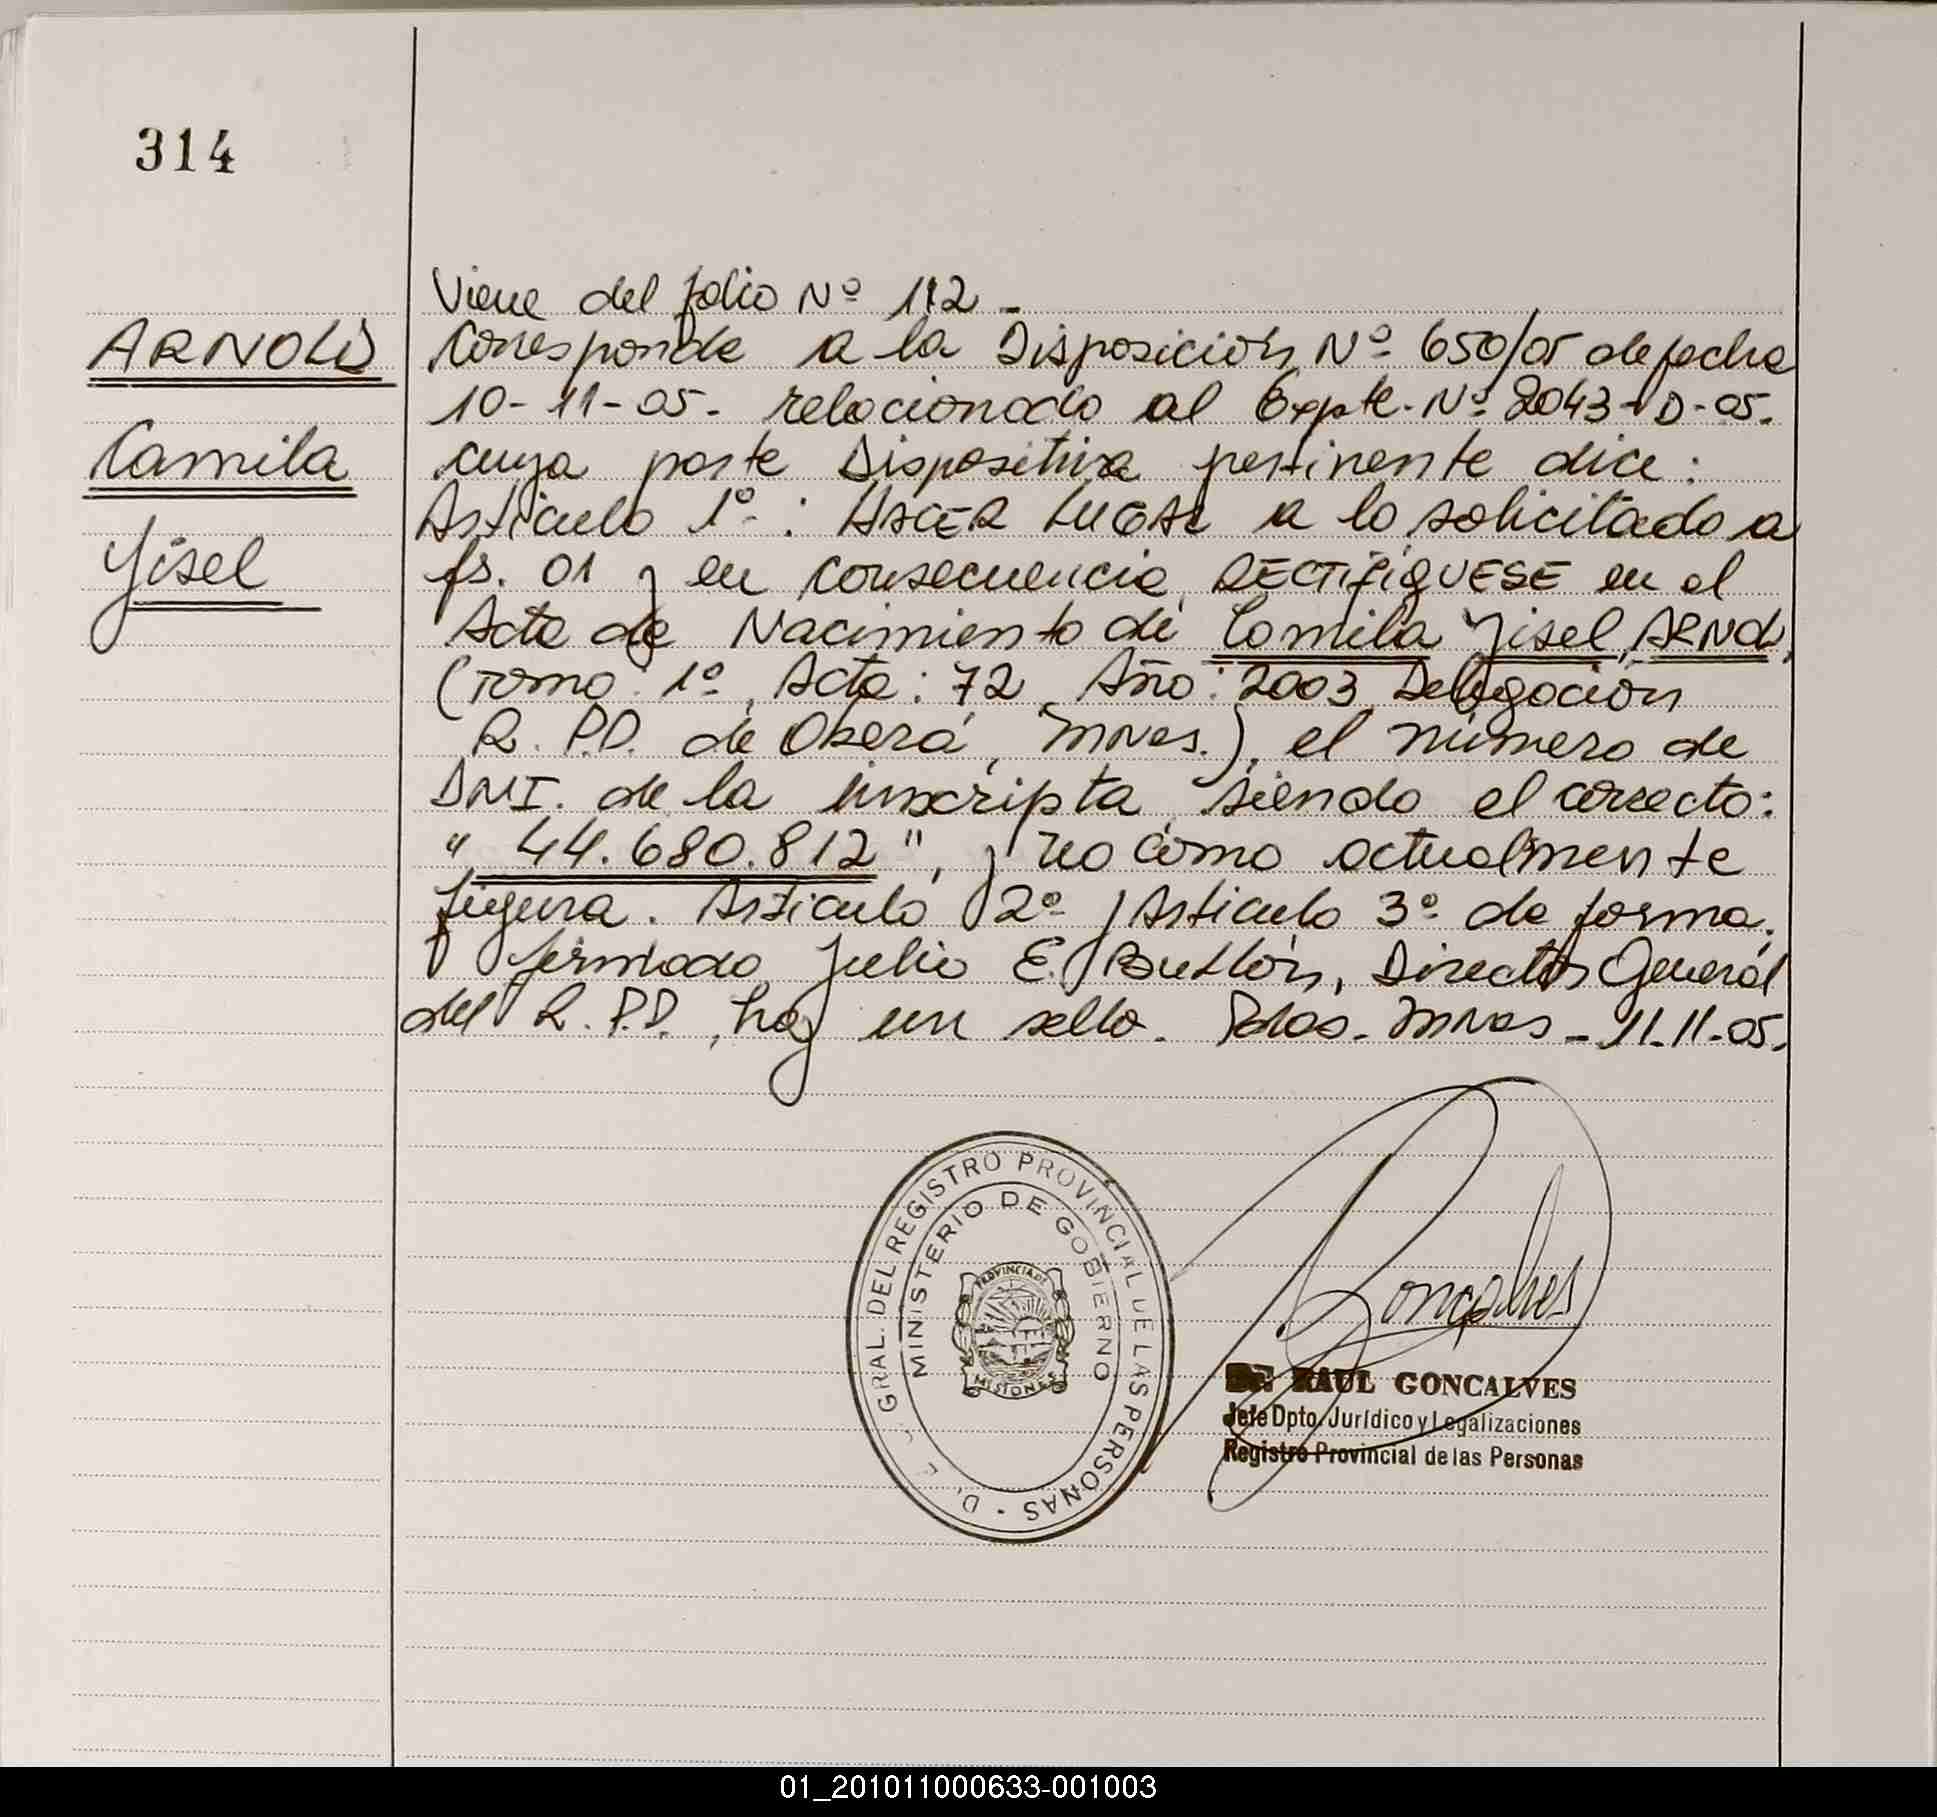 314
Viene del folio Nº 112 -
ARNOLD
Camila
Yisel
Corresponde a la Disposición Nº 650/05 de fecha
10-11-05. relacionado al Expte. Nº 2043-D-05.
cuya parte Dispositiva pertinente dice:
Artículo 1º: HACER LUGAR a lo solicitado a
fs. 01 y en consecuencia, RECTIFIQUESE en el
Acta de Nacimiento de Camila Yisel ARNOL,
(Tomo: 1º, Acta: 72, Año: 2003, Delegación
R.P.P. de Oberá, Mnes.), el número de
DNI. de la inscripta, siendo el correcto:
" 44.680.812 ", y no como actualmente
figura. Artículo 2º y Artículo 3º de forma.
firmado Julio E. Butlón, Director General
del R.P.P., hay un sello. Pdas. Mnes - 11-11-05.
GRAL. DEL REGISTRO PROVINCIAL DE LAS PERSONAS - D.
MINISTERIO DE GOBIERNO
PROVINCIA DE
MISIONES
Goncalves
Dr. RAUL GONCALVES
Jefe Dpto. Jurídico y Legalizaciones
Registro Provincial de las Personas
01_201011000633-001003